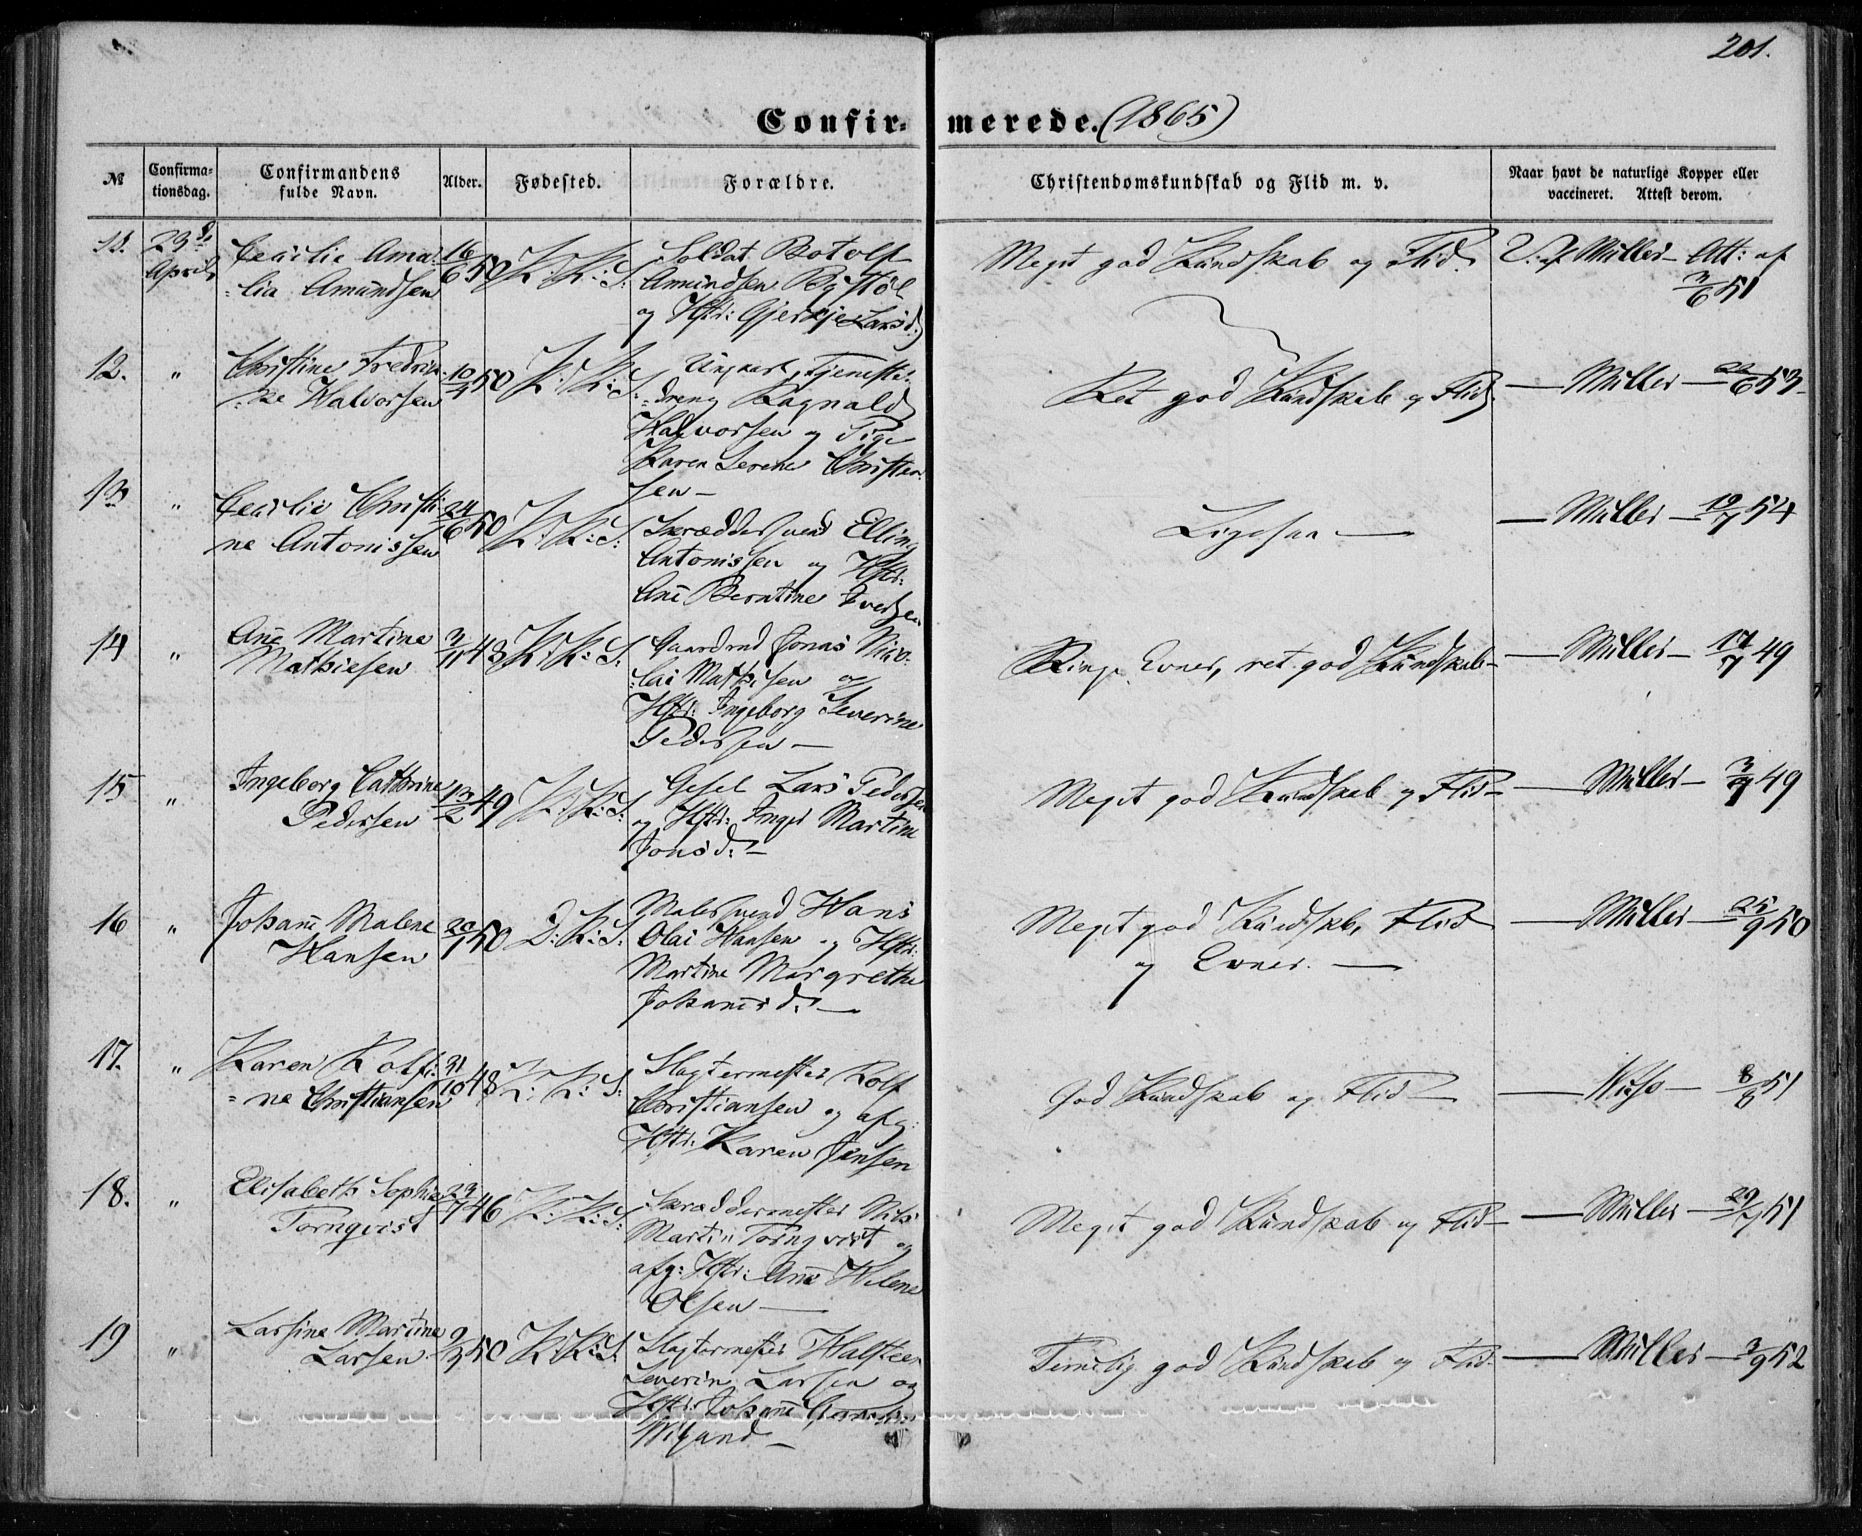 201.
Confirmerede. (1865)
№ Confirmationsdag. Confirmandens fulde Navn. Alder. Fødested. Forældre. Christendomskundskab og Flid m. v. Naar havt de naturlige Kopper eller vaccineret. Attest derom.
11. 23de April Cecilie Ama=
=lia Amundsen 16/6 50 K: K: S:
Soldat Botolf
Amundsen Bystøl
og Hstr: Gjertje Larsd:
Meget god Kundskab og Flid. V. af Müller Att: af 3/6 51
12. " Christine Fredrik=
=ke Halvorsen 10/9 50 K: K: S:
Ungkarl, Tjeneste=
=dreng Ragnald
Halvorsen og Pige
Karen Serene Christen=
sen —
Ret god Kundskab og Flid. — Müller — 22/6 53
13 " Cecilie Christi
ne Antonissen 24/6 50 K: K: S:
Skrædersvend Elling
Antonissen og Hstr:
Ane Berntine Iversen
Ligesaa — — Müller — 19/7 54
14 " Ane Martine
Mathiesen 3/11 48 K: K: S:
Gaardmd Jonas Nico=
=lai Mathisen og
Hstr: Ingeborg Severine
Pedersen —
Ringe Evner, ret god Kundskab — — Müller — 17/7 49
15 " Ingeborg Cathrine
Pedersen 13/2 49 K: K: S:
Gesel Lars Pedersen
og Hstr: Inger Martine
Jonsd: —
Meget god Kundskab og Flid — — Müller — 3/9 49
16 " Johane Malene
Hansen 20/1 50 D: K: S:
Malersvend Hans
Olai Hansen og Hstr:
Martine Margrethe
Johanesd. —
Meget god Kundskab, Flid
og Evner. — — Müller — 25/9 50
17. " Karen Rolfi=
=ne Christiansen 31/10 48 K: K: S:
Slagtermester Rolf
Christiansen og afg:
Hstr: Karen Jensen
God Kundskab og Flid — — — 8/8 51
18. " Elisabeth Sophie
Tornqvist 23/7 46 K: K: S:
Skræddermester Nils
Martin Tornqvist og
afg: Hstr: Ane Helene
Olsen —
Meget god Kundskab og Flid — — Müller — 29/7 51
19 " Larsine Martine
Larsen 9/3 50 K: K: S:
Slagtermester Halsteen
Severin Larsen og
Hstr: Johane
Wigand —
Temelig god Kundskab og Flid. — Müller — 3/9 52